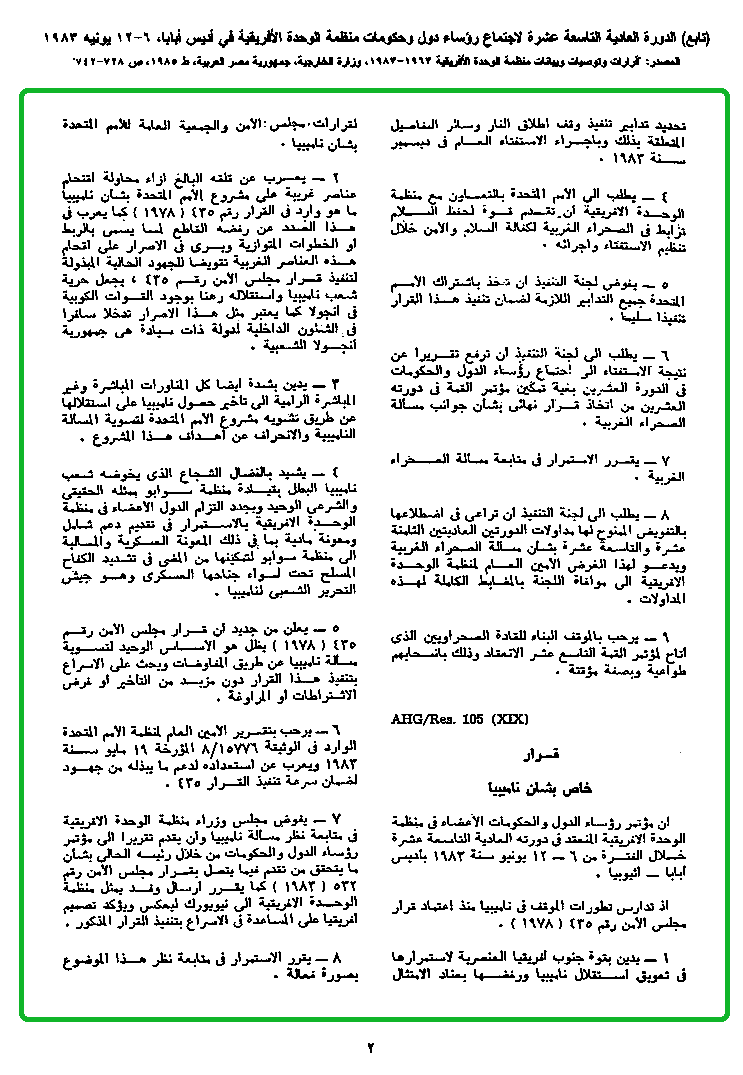 (تابع) الدورة العادية التاسعة عشرة لاجتماع رؤساء دول وحكومات منظمة الوحدة الأفريقية في أديس أبابا، ٦-١٢ يونيه ١٩٨٣
المصدر: قرارات وتوصيات وبيانات منظمة الوحدة الأفريقية ١٩٦٣-١٩٨٣، وزارة الخارجية، جمهورية مصر العربية، ط ١٩٨٥، ص ٧٢٨-٧٤٢
تحديد تدابير تنفيذ وقف اطلاق النار وسائر التفاصيل
المتعلقة بذلك وباجراء الاستفتاء العام فى ديسمبر
سنة ١٩٨٣ .
٤ — يطلب الى الأمم المتحدة بالتعاون مع منظمة
الوحدة الافريقية أن تقدم قوة لحفظ السلام
ترابط فى الصحراء الغربية لكفالة السلام والأمن خلال
تنظيم الاستفتاء واجرائه .
٥ — يفوض لجنة التنفيذ أن تتخذ باشتراك الأمم
المتحدة جميع التدابير اللازمة لضمان تنفيذ هذا القرار
تنفيذا سليما .
٦ — يطلب الى لجنة التنفيذ أن ترفع تقريرا عن
نتيجة الاستفتاء الى اجتماع رؤساء الدول والحكومات
فى الدورة العشرين بغية تمكين مؤتمر القمة فى دورته
العشرين من اتخاذ قرار نهائى بشأن جوانب مسألة
الصحراء الغربية .
٧ — يقرر الاستمرار فى متابعة مسألة الصحراء
الغربية .
٨ — يطلب الى لجنة التنفيذ أن تراعى فى اضطلاعها
بالتفويض الممنوح لها مداولات الدورتين العاديتين الثامنة
عشرة والتاسعة عشرة بشأن مسألة الصحراء الغربية
ويدعو لهذا الغرض الأمين العام لمنظمة الوحدة
الافريقية الى موافاة اللجنة بالمضابط الكاملة لهذه
المداولات .
٩ — يرحب بالموقف البناء للقادة الصحراويين الذى
أتاح لمؤتمر القمة التاسع عشر الانعقاد وذلك بانسحابهم
طواعية وبصفة مؤقتة .
AHG/Res. 105 (XIX)
قرار
خاص بشأن ناميبيا
ان مؤتمر رؤساء الدول والحكومات الأعضاء فى منظمة
الوحدة الافريقية المنعقد فى دورته العادية التاسعة عشرة
خلال الفترة من ٦ — ١٢ يونيو سنة ١٩٨٣ بأديس
أبابا — أثيوبيا .
اذ تدارس تطورات الموقف فى ناميبيا منذ اعتماد قرار
مجلس الأمن رقم ٤٣٥ ( ١٩٧٨ ) .
١ — يدين بقوة جنوب أفريقيا العنصرية لاستمرارها
فى تعويق استقلال ناميبيا ورفضها بعناد الامتثال
لقرارات مجلس الأمن والجمعية العامة للأمم المتحدة
بشأن ناميبيا .
٢ — يعرب عن قلقه البالغ ازاء محاولة اقتحام
عناصر غريبة على مشروع الأمم المتحدة بشأن ناميبيا
ما هو وارد فى القرار رقم ٤٣٥ ( ١٩٧٨ ) كما يعرب فى
هذا الصدد عن رفضه القاطع لما يسمى بالربط
أو الخطوات المتوازية ويرى فى الاصرار على اقحام
هذه العناصر الغريبة تقويضا للجهود الحالية المبذولة
لتنفيذ قرار مجلس الأمن رقم ٤٣٥ ، بجعل حرية
شعب ناميبيا واستقلاله رهنا بوجود القوات الكوبية
فى أنجولا كما يعتبر مثل هذا الاصرار تدخلا سافرا
فى الشئون الداخلية لدولة ذات سيادة هى جمهورية
أنجولا الشعبية .
٣ — يدين بشدة أيضا كل المناورات المباشرة وغير
المباشرة الرامية الى تأخير حصول ناميبيا على استقلالها
عن طريق تشويه مشروع الأمم المتحدة لتسوية المسألة
الناميبية والانحراف عن أهداف هذا المشروع .
٤ — يشيد بالنضال الشجاع الذى يخوضه شعب
ناميبيا البطل بقيادة منظمة سوابو ممثله الحقيقى
والشرعى الوحيد ويجدد التزام الدول الأعضاء فى منظمة
الوحدة الافريقية بالاستمرار فى تقديم دعم شامل
ومعونة مادية بما فى ذلك المعونة العسكرية والمالية
الى منظمة سوابو لتمكينها من المضى فى تشديد الكفاح
المسلح تحت لواء جناحها العسكرى وهو جيش
التحرير الشعبى لناميبيا .
٥ — يعلن من جديد أن قرار مجلس الأمن رقم
٤٣٥ ( ١٩٧٨ ) يظل هو الأساس الوحيد لتسوية
مسألة ناميبيا عن طريق المفاوضات ويحث على الاسراع
بتنفيذ هذا القرار دون مزيد من التأخير أو فرض
الاشتراطات أو المراوغة .
٦ — يرحب بتقرير الأمين العام لمنظمة الأمم المتحدة
الوارد فى الوثيقة ٨/١٥٧٧٦ المؤرخة ١٩ مايو سنة
١٩٨٣ ويعرب عن استعداده لدعم ما يبذله من جهود
لضمان سرعة تنفيذ القرار ٤٣٥ .
٧ — يفوض مجلس وزراء منظمة الوحدة الافريقية
فى متابعة نظر مسألة ناميبيا وأن يقدم تقريرا الى مؤتمر
رؤساء الدول والحكومات من خلال رئيسه الحالى بشأن
ما يتحقق من تقدم فيما يتصل بقرار مجلس الأمن رقم
٥٣٢ ( ١٩٨٣ ) كما يقرر ارسال وفد يمثل منظمة
الوحدة الافريقية الى نيويورك ليعكس ويؤكد تصميم
أفريقيا على المساعدة فى الاسراع بتنفيذ القرار المذكور .
٨ — يقرر الاستمرار فى متابعة نظر هذا الموضوع
بصورة فعالة .
٢